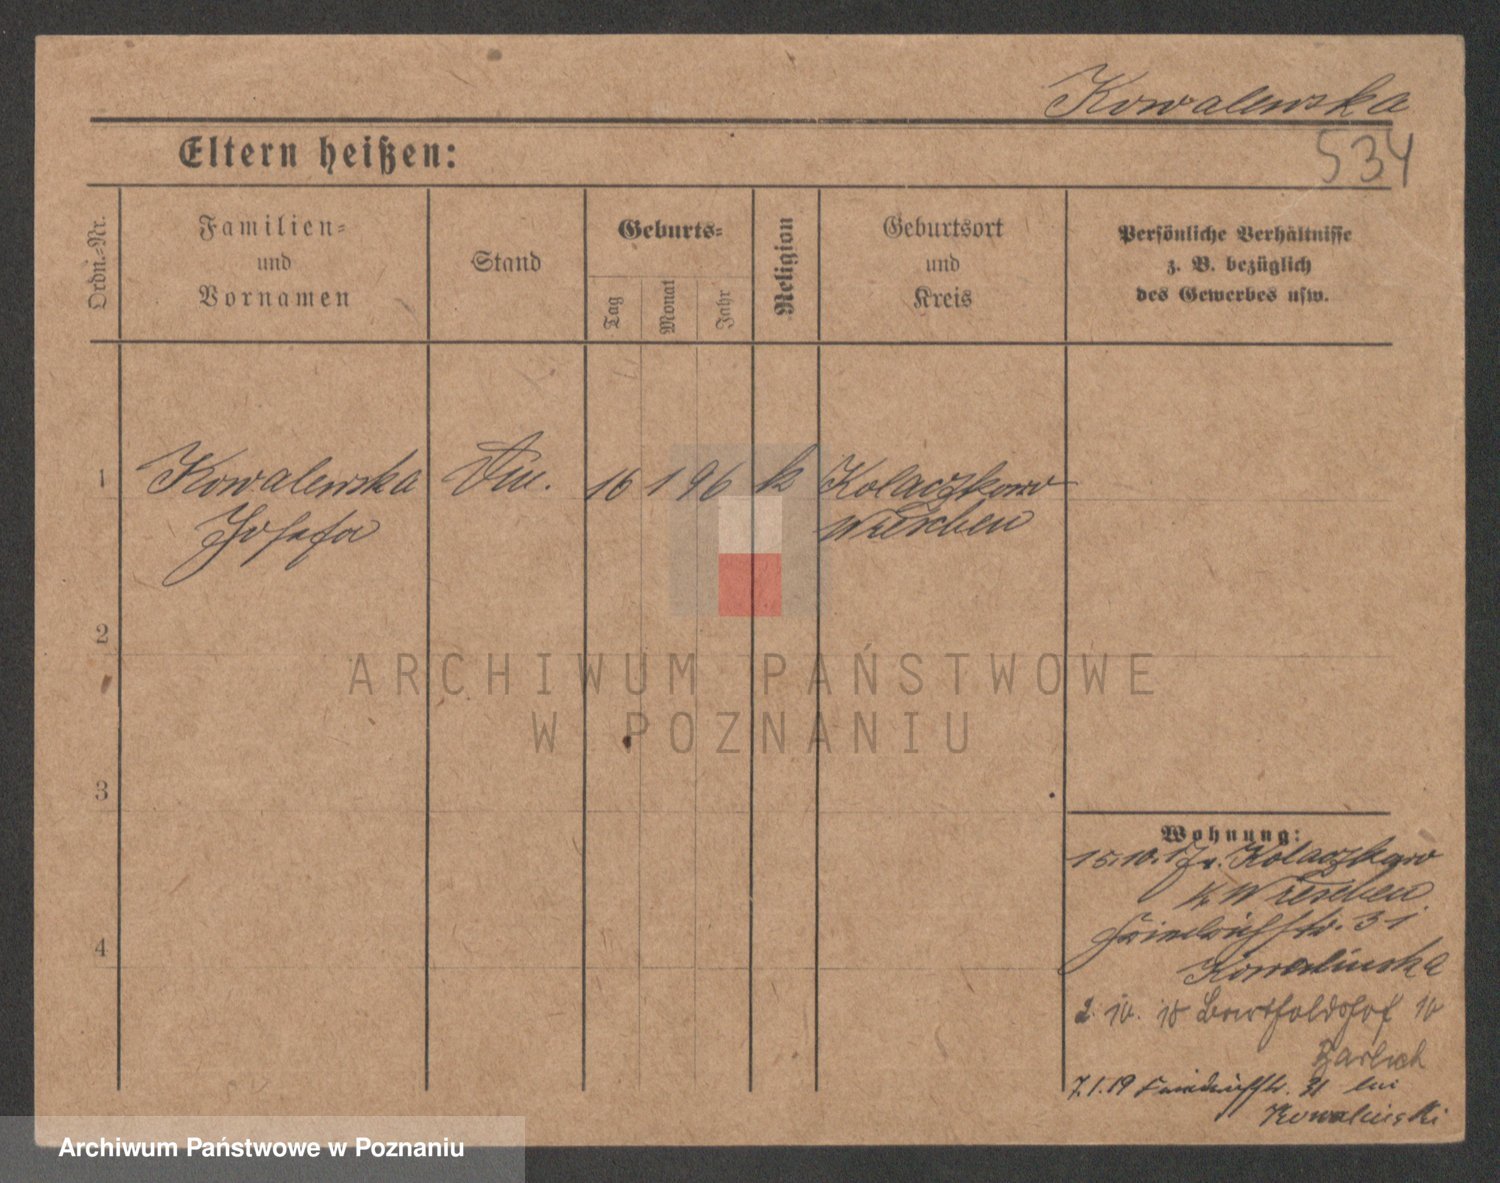 Kowalewska
534
Eltern heißen:
Ordn.-Nr.
Familien-
und
Vornamen
Stand
Geburts-
Tag
Monat
Jahr
Religion
Geburtsort
und
Kreis
Persönliche Verhältnisse
z. B. bezüglich
des Gewerbes usw.
1 Kowalewska 16 1 96 k Kolaczkowo
Josefa Wreschen
2
3
4
Wohnung:
15.10.17 v. Kolaczkowo
Kr Wreschen
Friedrichstr. 31
Kowalinska
2. 10. 18 10
7.1.19 Friedrichstr. 31 bei
Kowalinski
ARCHIWUM PAŃSTWOWE
W POZNANIU
Archiwum Państwowe w Poznaniu